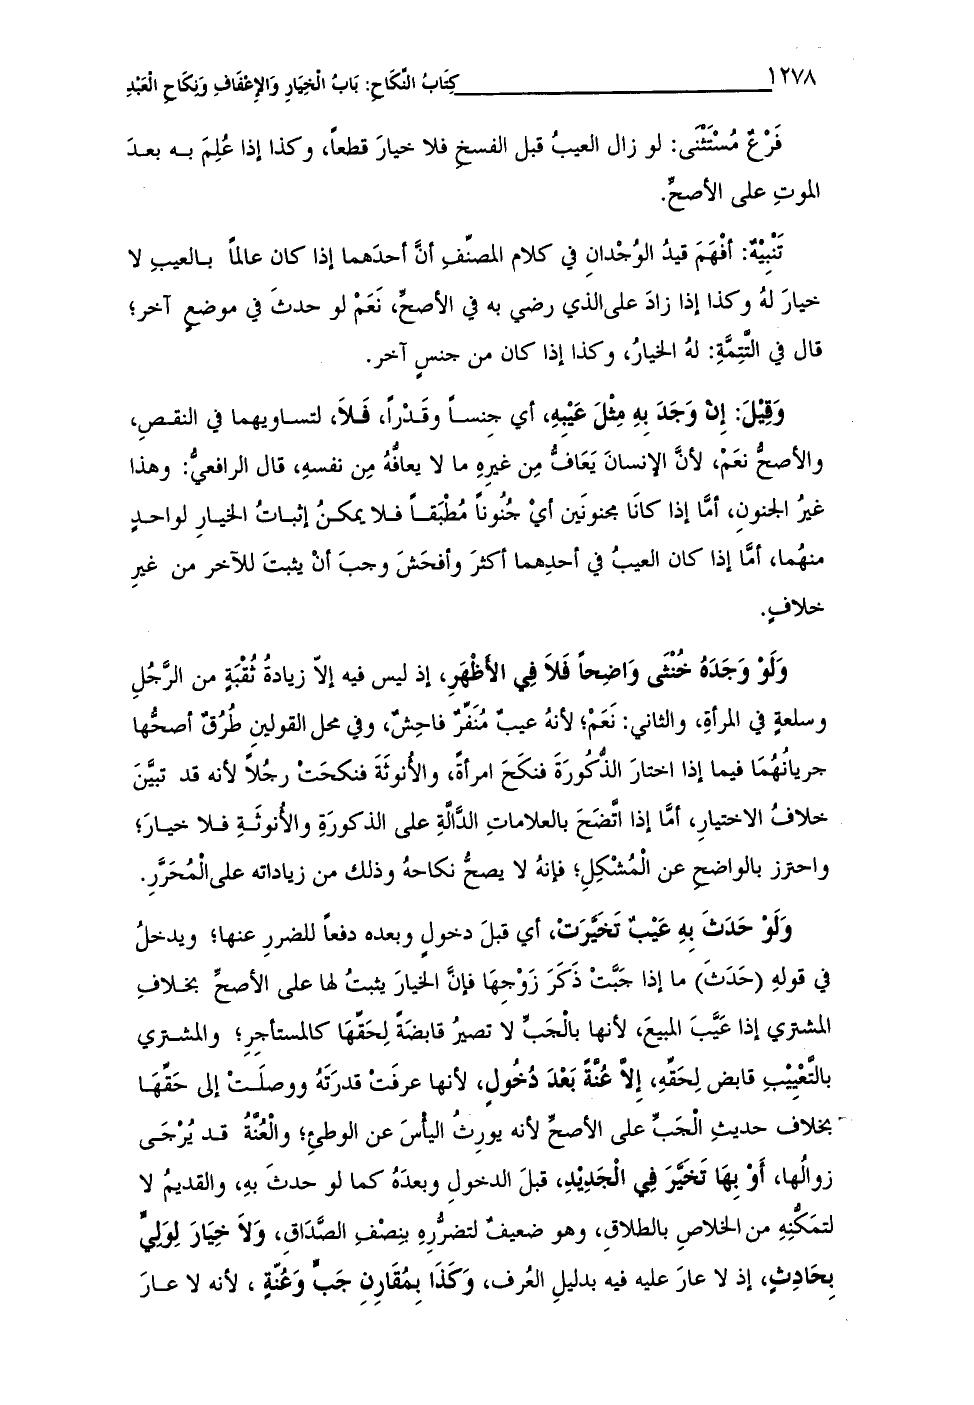 ١٢٧٨ كِتَابُ النِّكَاحِ: بَابُ الْخِيَارِ وَالإِعْفَافِ وَنِكَاحِ الْعَبْدِ
فَرْعٌ مُسْتَثْنَى: لو زال العيبُ قبل الفسخِ فلا خيارَ قطعاً، وكذا إذا عُلِمَ به بعدَ
الموتِ على الأصحِّ.
تَنْبِيْهٌ: أفْهَمَ قيدُ الوُجْدانِ في كلام المصنِّفِ أنَّ أحدَهما إذا كان عالماً بالعيبِ لا
خيارَ لهُ وكذا إذا زادَ على الذي رضي به في الأصحِّ، نَعَمْ لو حدثَ في موضعٍ آخر؛
قال في التَّتِمَّةِ: لهُ الخيارُ، وكذا إذا كان من جنسٍ آخر.
وَقِيْلَ: إِنْ وَجَدَ بِهِ مِثْلَ عَيْبِهِ، أي جِنساً وقَدْراً، فَلاَ، لتساويهما في النقصِ،
والأصحُّ نعَمْ، لأنَّ الإنسانَ يَعَافُّ مِن غيرِهِ ما لا يعافُّهُ مِن نفسهِ، قال الرافعيُّ: وهذا
غيرُ الجنونِ، أمَّا إذا كانَا مجنونَين أيْ جُنُوناً مُطْبَقاً فلا يمكنُ إثباتُ الخيارِ لواحدٍ
منهُما، أمَّا إذا كان العيبُ في أحدِهما أكثرَ وأفحَشَ وجبَ أنْ يثبتَ للآخر من غيرِ
خلافٍ.
وَلَوْ وَجَدَهُ خُنْثَى وَاضِحاً فَلاَ فِي الأَظْهَرِ، إذ ليس فيه إلاّ زيادةُ ثُقْبَةٍ من الرَّجُلِ
وسلعةٍ في المرأةِ، والثاني: نَعَمْ؛ لأنهُ عيبٌ مُنَفِّرٌ فاحِشٌ، وفي محل القولينِ طُرُقٌ أصحُّها
جريانُهُمَا فيما إذا اختارَ الذُّكُورَةَ فنكَحَ امرأةً، والأُنوثَةَ فنكحَتْ رجُلاً لأنه قد تبيَّنَ
خلافُ الاختيارِ، أمَّا إذا اتَّضَحَ بالعلاماتِ الدَّالَّةِ على الذكورَةِ والأنوثَةِ فلا خيارَ؛
واحترز بالواضحِ عن الْمُشْكِلِ؛ فإنهُ لا يصحُّ نكاحهُ وذلك من زياداته على الْمُحَرَّرِ.
وَلَوْ حَدَثَ بِهِ عَيْبٌ تَخَيَّرَتْ، أي قبلَ دخولٍ وبعده دفعاً للضررِ عنها؛ ويدخلُ
في قولهِ (حَدَثَ) ما إذا جَبَّتْ ذَكَرَ زَوْجِهَا فإنَّ الخيارَ يثبتُ لها على الأصحِّ بخلافِ
المشتري إذا عَيَّبَ المبيعَ، لأنها بالْجَبِّ لا تصيرُ قابضَةً لِحَقِّهَا كالمستأجرِ؛ والمشتري
بالتَّعْيِيْبِ قابض لِحَقِّهِ، إِلاَّ عُنَّةً بَعْدَ دُخُولٍ، لأنها عرفَتْ قدرَتَهُ ووصلَتْ إلى حَقِّهَا
بخلافِ حديثِ الْجَبِّ على الأصحِّ لأنه يورِثُ اليأسَ عن الوطئِ؛ والْعُنَّةُ قد يُرْجَى
زوالُها، أَوْ بِهَا تَخَيَّرَ فِي الْجَدِيْدِ، قبلَ الدخولِ وبعدَهُ كما لو حدثَ بهِ، والقديمُ لا
لتمَكُّنِهِ من الخلاصِ بالطلاقِ، وهو ضعيفٌ لتضرُّرهِ بنِصْفِ الصَّدَاقِ، وَلاَ خِيَارَ لِوَلِيٍّ
بِحَادِثٍ، إذ لا عارَ عليه فيه بدليلِ العُرف، وَكَذَا بِمُقَارِنِ جَبٍّ وَعُنَّةٍ، لأنه لا عارَ